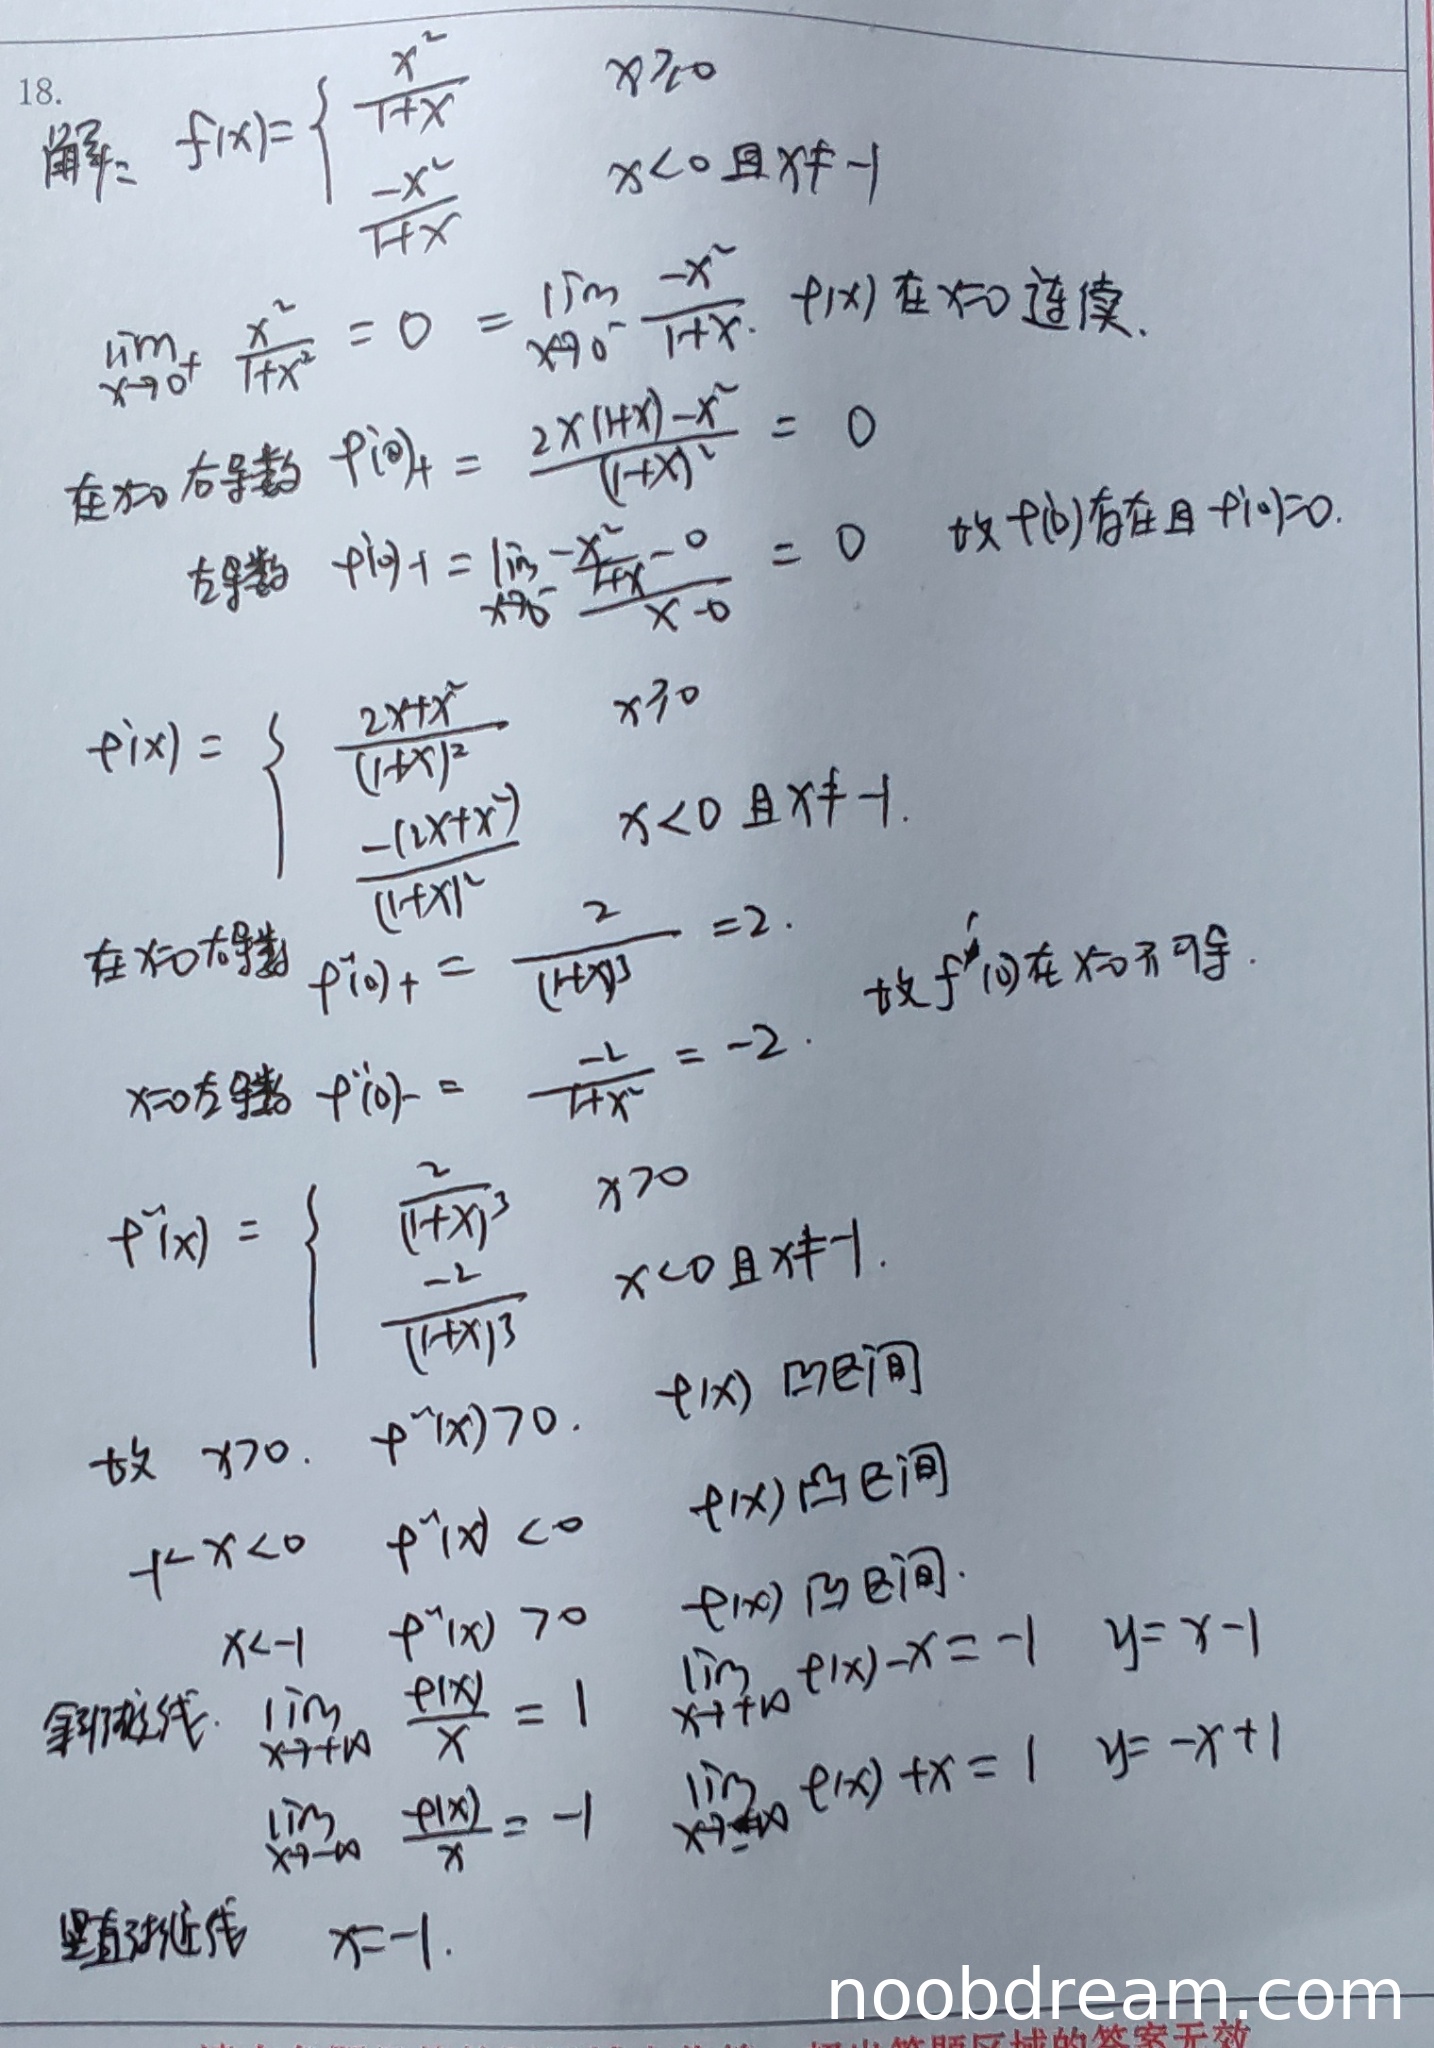 18.
解: f(x)= { x²/(1+x)   x≥0
-x²/(1+x)   x<0且x≠-1
lim x→0⁺ x²/(1+x²) = 0 = lim x→0⁻ -x²/(1+x). f(x)在x=0连续.
在x=0右导数 f'(0)+ = (2x(1+x)-x²)/(1+x)² = 0
左导数 f'(0)- = lim x→0⁻ (-x²/(1+x) - 0)/(x-0) = 0   故f'(0)存在且f'(0)=0.
f'(x) = { (2x+x²)/(1+x)²   x≥0
-(2x+x²)/(1+x)²   x<0且x≠-1.
在x=0右导数 f''(0)+ = 2/(1+x)³ = 2.
故f'(0)在x=0不可导.
x=0左导数 f''(0)- = -2/(1+x²) = -2.
f''(x) = { 2/(1+x)³   x>0
-2/(1+x)³   x<0且x≠-1.
故 x>0. f''(x)>0. f(x) 凹区间
-1<x<0 f''(x)<0 f(x)凸区间
x<-1 f''(x)>0 f(x)凹区间.
斜渐近线. lim x→+∞ f(x)/x = 1   lim x→+∞ f(x)-x=-1   y=x-1
lim x→-∞ f(x)/x = -1   lim x→-∞ f(x)+x=1   y=-x+1
垂直渐近线   x=-1.
noobdream.com
超出答题区域的答案无效